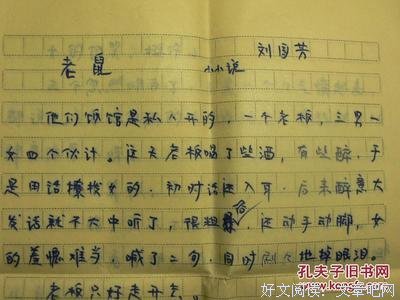 老鼠 小小说 刘国芳
他们饭馆是私人开的，一个老板，三男一
女四个伙计。这天老板喝了些酒，有些醉，于
是用话撩拨女的，初时话还入耳，后来醉意大
发话就不大中听了，很粗鲁，还动手动脚，女
的羞愧难当，喊了二句，同时地掉眼泪。
老板只好走开去。
孔夫子旧书网
好文阅读：文章吧网